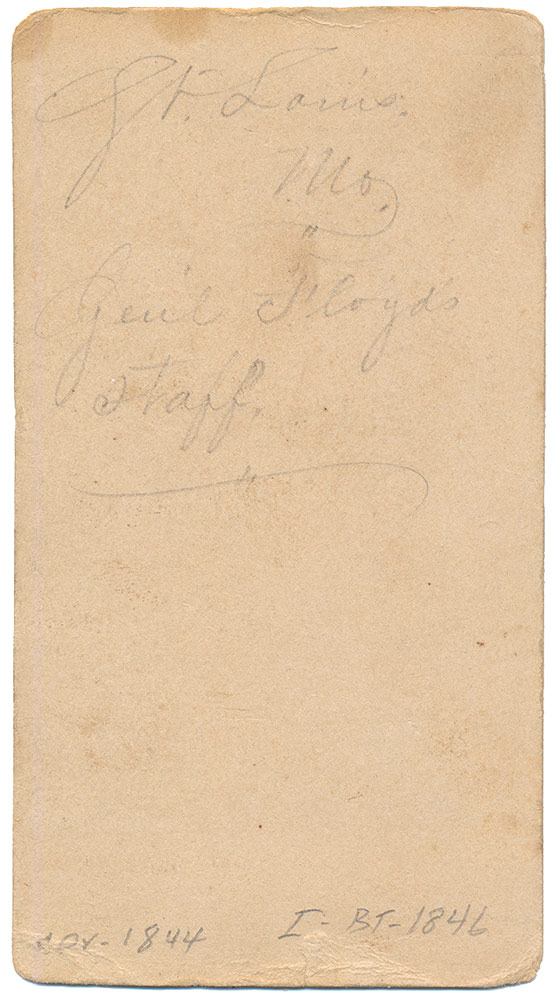 St. Louis.
Mo.
"
Gen'l Floyds
Staff.
"
1844 I-BT-1846